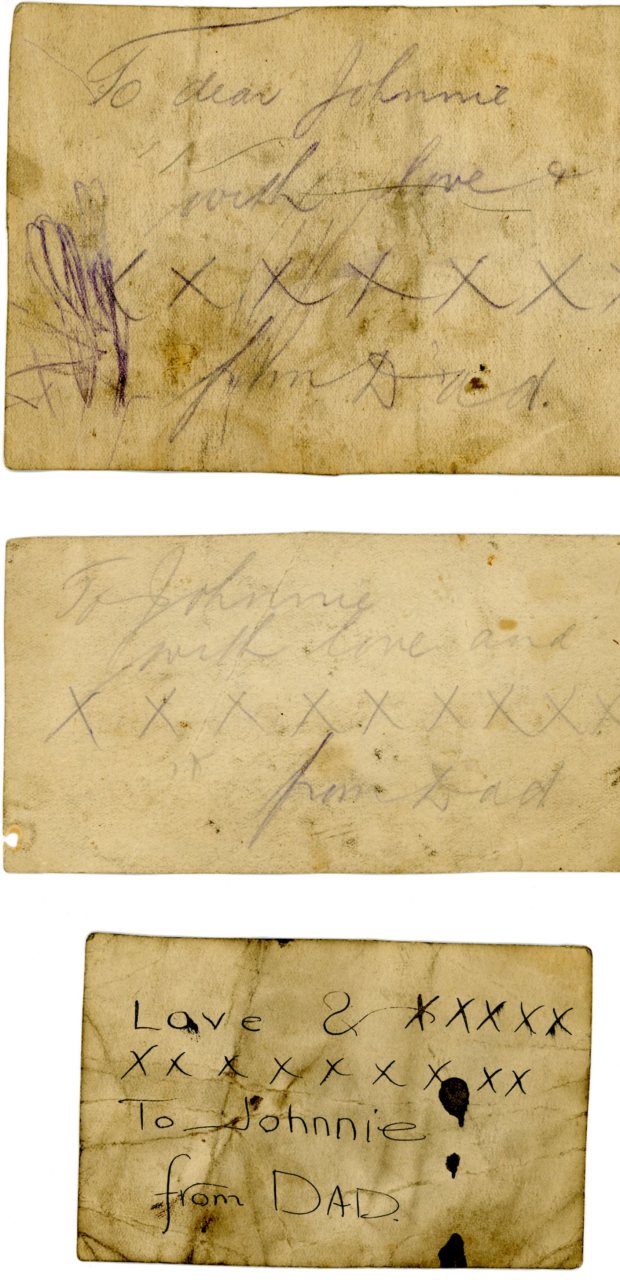 To dear Johnnie
with love &
X X X X X X X
from Dad.
To Johnnie
with love and
X X X X X X X X X
from Dad
Love & XXXXX
XX X X X X X XX
To Johnnie
from DAD.